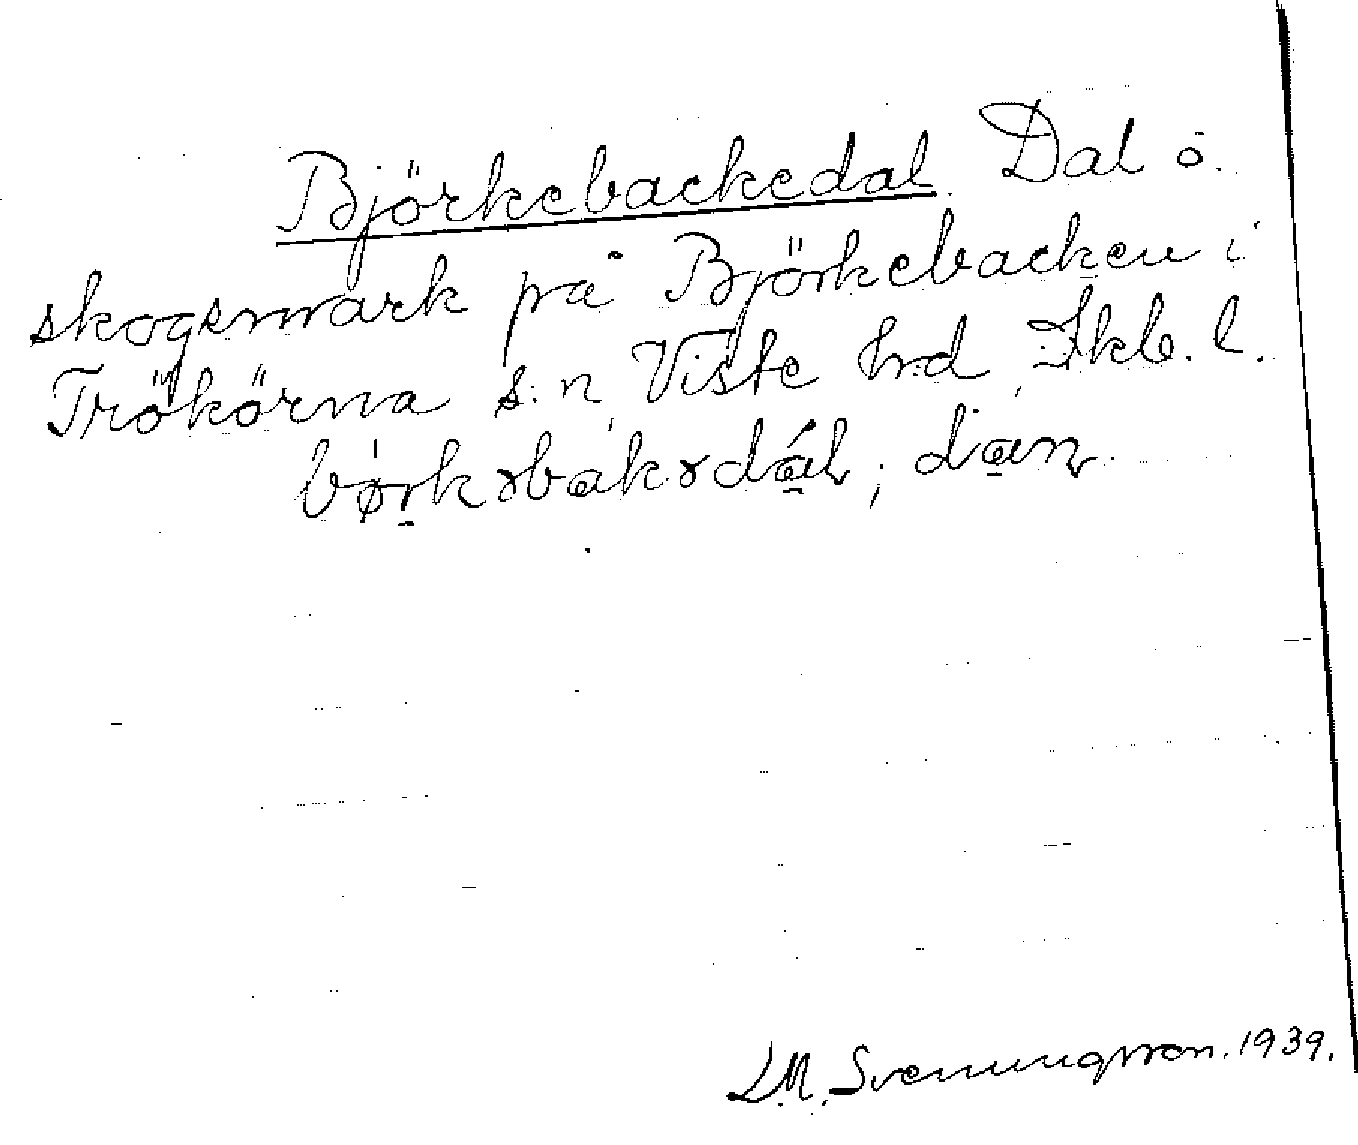 Björkebackedal. Dal o.
skogsmark på Björkebacken i
Trökörna s:n, Viste hrd, Skb. l.
børkɤbakɤdál; dan
L.M. Svenungsson. 1939.